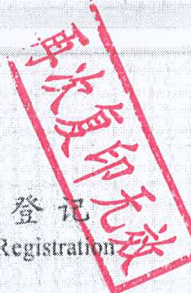 再次复印无效
登记
Registration